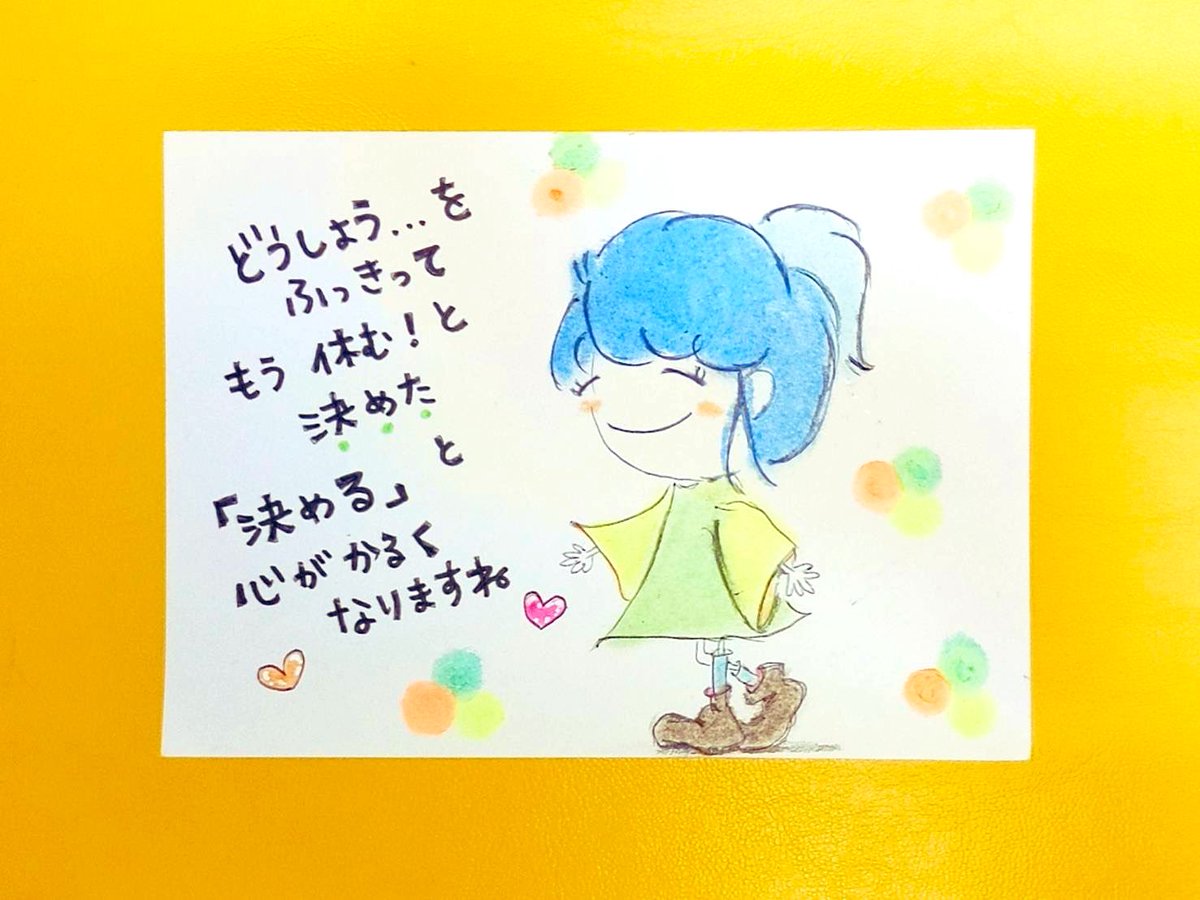 どうしよう...を
ふっきって
もう休む!と
決めた
と
「決める」
心がかるく
なりますね